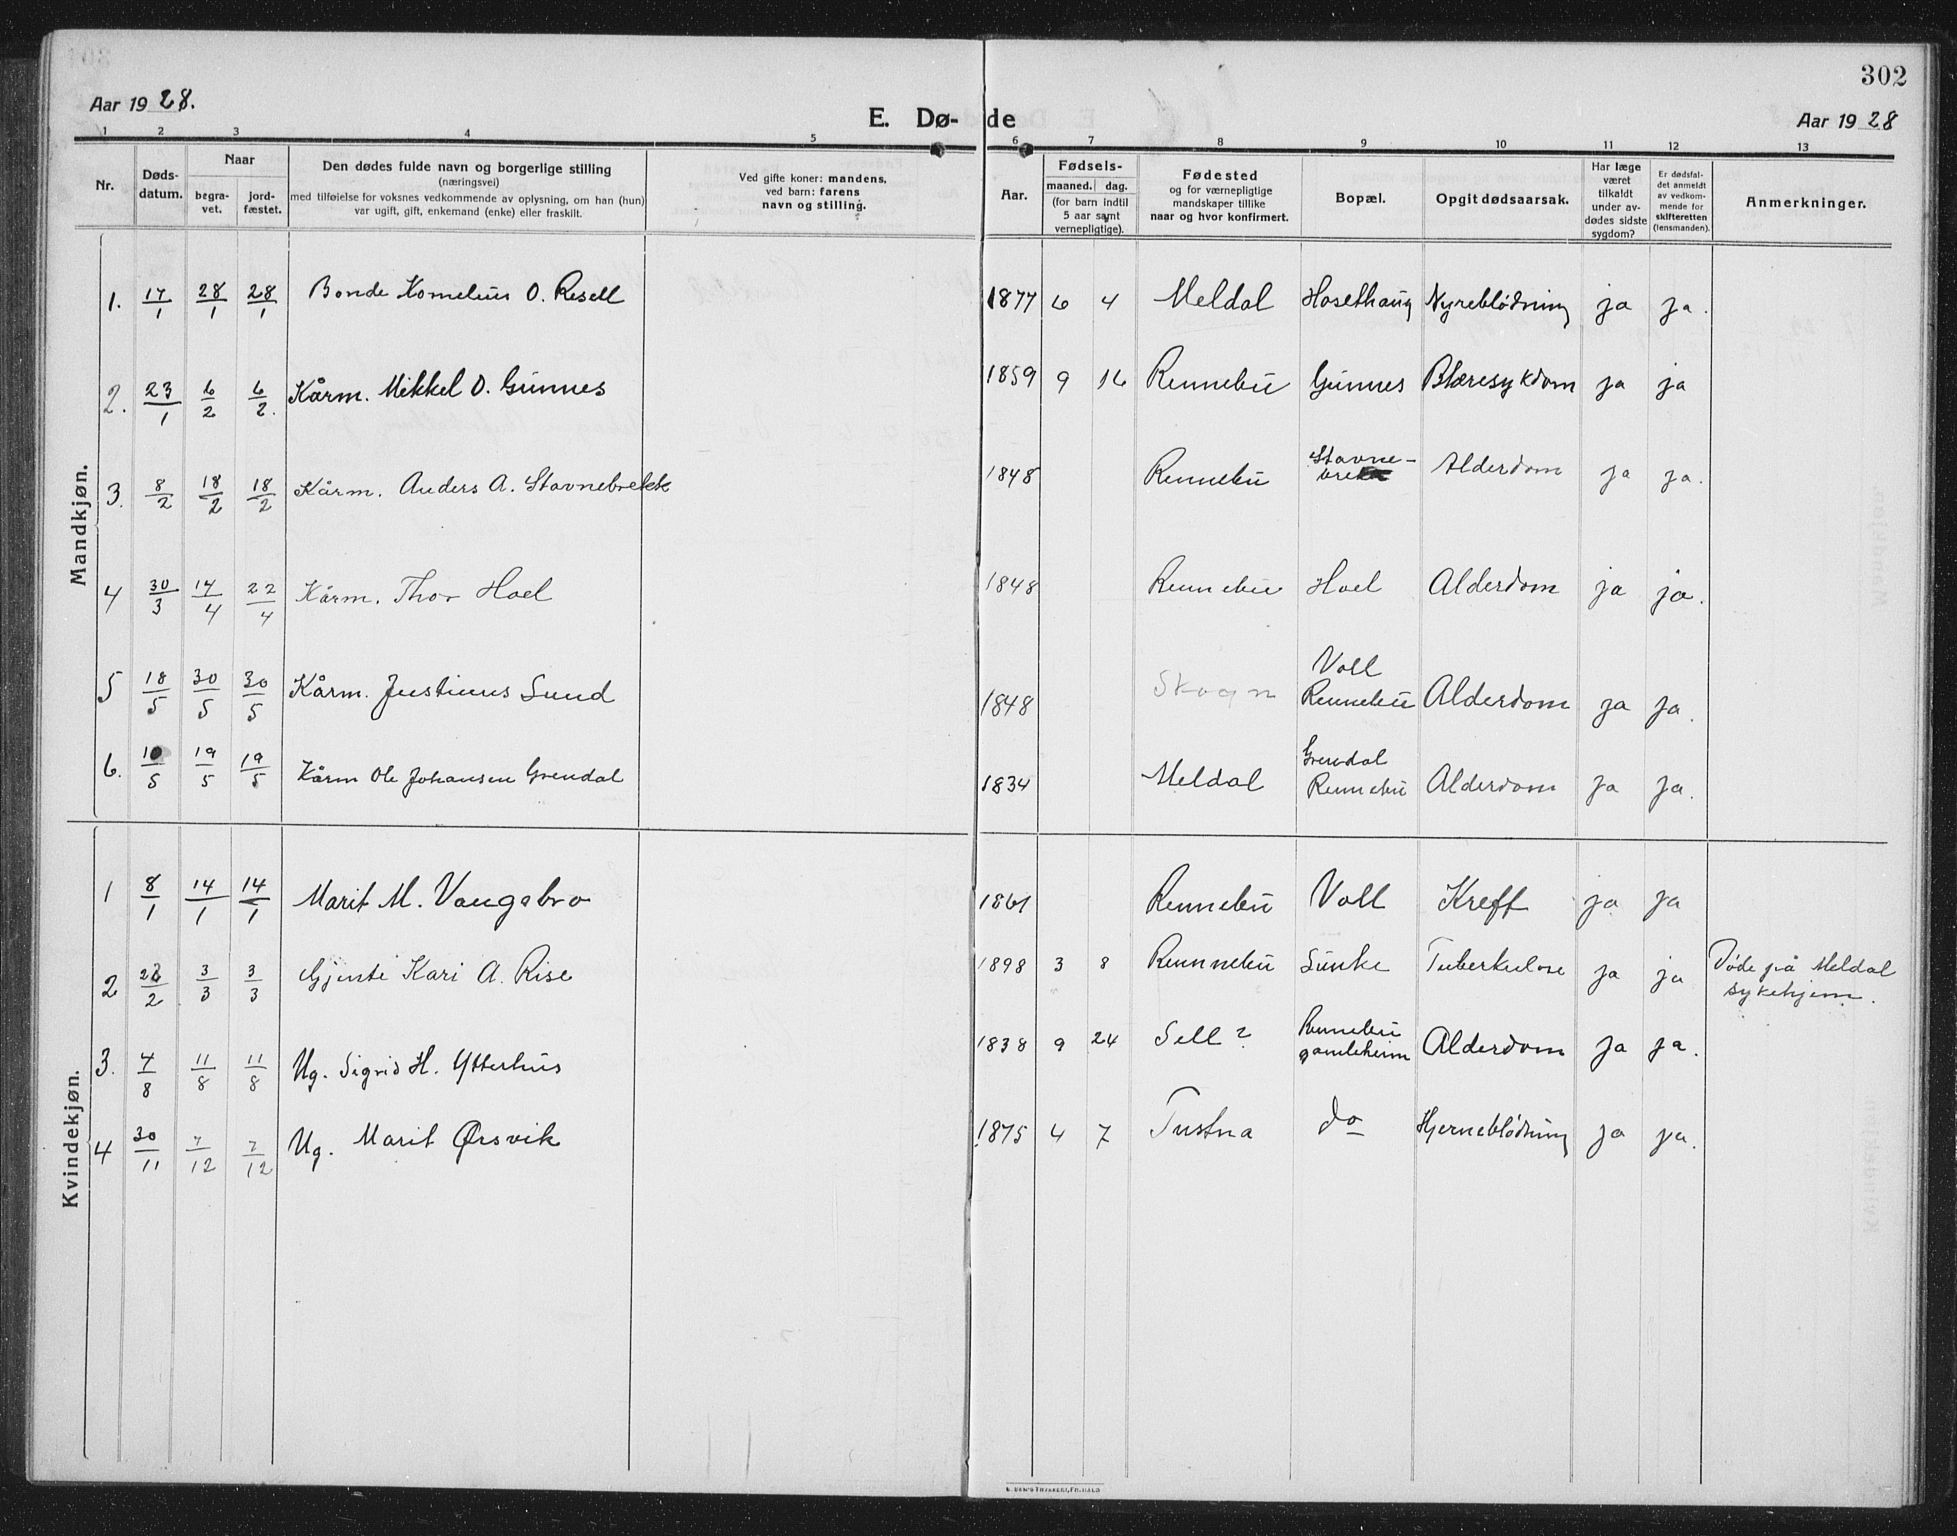 302
Aar 1928.
E. Dø-de
Aar 1928
1 2 3 4 5 6 7 8 9 10 11 12 13
Nr.
Døds-
datum.
Naar
begra-
vet.
jord-
fæstet.
Den dødes fulde navn og borgerlige stilling
(næringsvei)
med tilføielse for voksnes vedkommende av oplysning, om han (hun)
var ugift, gift, enkemand (enke) eller fraskilt.
Ved gifte koner: mandens,
ved barn: farens
navn og stilling.
Aar.
Fødsels-
maaned. dag.
(for barn indtil
5 aar samt
vernepligtige).
Fødested
og for værnepligtige
mandskaper tillike
naar og hvor konfirmert.
Bopæl.
Opgit dødsaarsak.
Har læge
været
tilkaldt
under av-
dødes sidste
sygdom?
Er dødsfal-
det anmeldt
av vedkom-
mende for
skifteretten
(lensmanden).
Anmerkninger.
Mandkjøn.
1. 17/1 28/1 28/1 Bonde Kornelius O. Resell 1877 6 4 Meldal Hosethaug Nyreblødning ja ja.
2. 23/1 6/2 6/2. Kårm. Mikkel O. Gunnes 1859 9 16 Rennebu Gunnes Blæresykdom ja ja
3. 8/2 18/2 18/2 Kårm. Anders A. Stavnebrekk 1848 Rennebu Stavne-
brekk Alderdom ja ja.
4 30/3 14/4 22/4 Kårm. Thor Hoel 1848 Rennebu Hoel Alderdom ja ja.
5 18/5 30/5 30/5 Kårm. Justinus Sund 1848 Skogn Voll
Rennebu Alderdom ja ja.
6. 10/5 19/5 19/5 Kårm Ole Johansen Grendal 1834 Meldal Grendal
Rennebu Alderdom ja ja.
Kvindekjøn.
1 8/1 14/1 14/1 Marit M. Vangsbro 1861 Rennebu Voll Kreft ja ja
2 /2 3/3 3/3 Gjente Kari A. Rise 1898 3 8 Rennebu Lunke Tuberkulose ja ja Døde på Meldal
sykehjem.
3. 4/8 11/8 11/8 Ug. Sigrid H. Ytterhus 1838 9 24 Sell? Rennebu
gamleheim Alderdom ja ja.
4 30/11 7/12 7/12 Ug. Marit Ørsvik 1875 4 7 Tustna do Hjerneblødning ja ja.